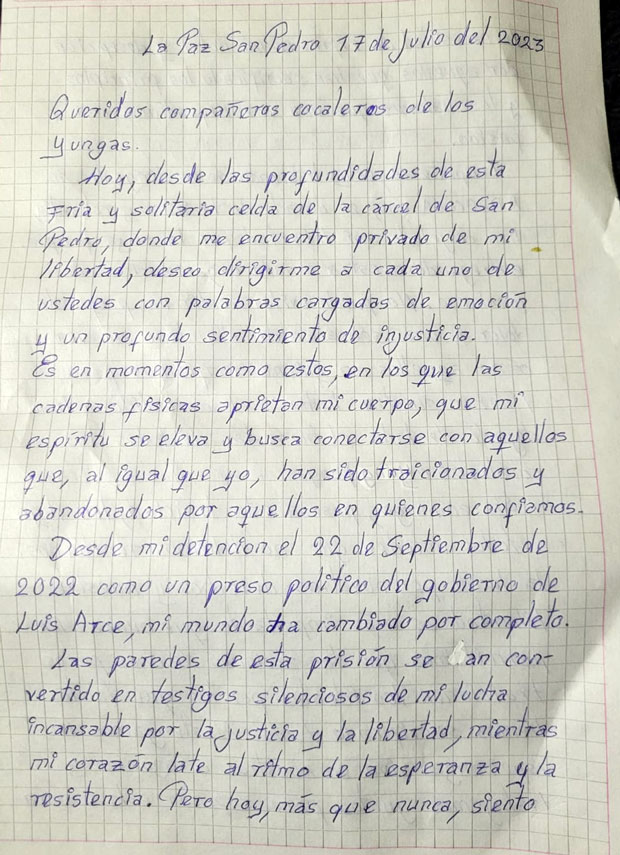 La Paz San Pedro 17 de Julio del 2023
Queridos compañeros cocaleros de los
yungas.
Hoy, desde las profundidades de esta
Fria y solitaria celda de la cárcel de San
Pedro, donde me encuentro privado de mi
libertad, deseo dirigirme a cada uno de
ustedes con palabras cargadas de emoción
y un profundo sentimiento de injusticia.
Es en momentos como estos, en los que las
cadenas físicas aprietan mi cuerpo, que mi
espíritu se eleva y busca conectarse con aquellos
que, al igual que yo, han sido traicionados y
abandonados por aquellos en quienes confiamos.
Desde mi detencion el 22 de Septiembre de
2022 como un preso político del gobierno de
Luis Arce, mi mundo ha cambiado por completo.
Las paredes de esta prisión se han con-
vertido en testigos silenciosos de mi lucha
incansable por la justicia y la libertad, mientras
mi corazón late al ritmo de la esperanza y la
resistencia. Pero hoy, más que nunca, siento